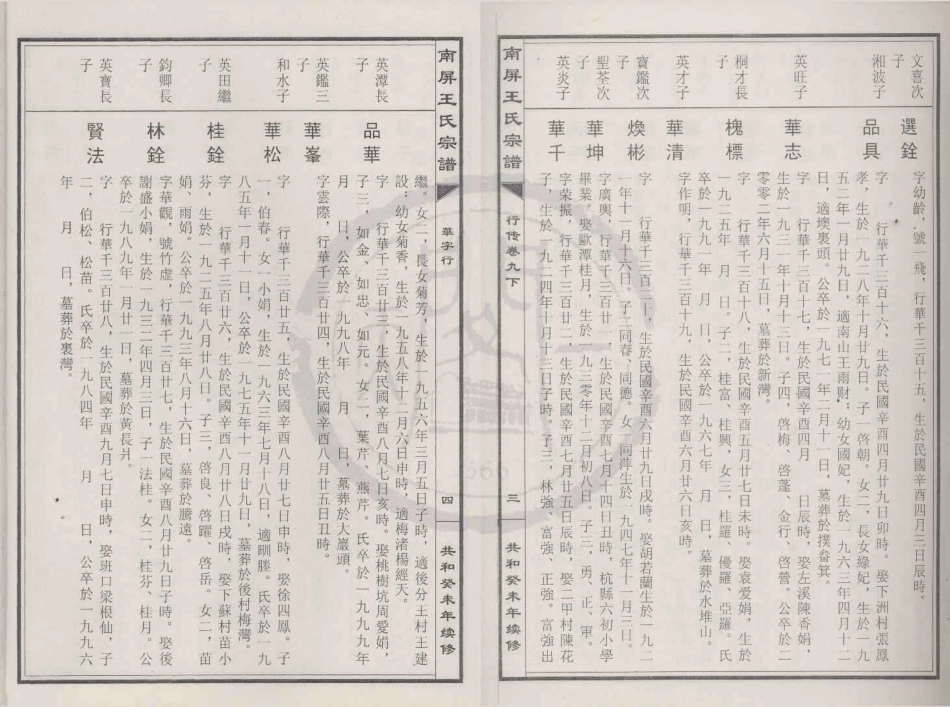 南屏王氏宗譜
行传卷九下
三
共和癸未年续修
文喜次子
選銓
字幼齡，號一飛，行華千三百十五，生於民國辛酉四月三日辰時。
湘波子
品具
字　　行華千三百十六，生於民國辛酉四月廿九日卯時。娶下洲村張鳳
孝，生於一九二八年十月廿九日。子一啓朝。女二，長女緣妃，生於一九
五二年一月廿九日，適南山王雨財；幼女國妃，生於一九六三年四月十二
日，適墺裏頭。公卒於一九七一年二月十一日，墓葬於撲畚箕。
英旺子
華志
字　　行華千三百十七，生於民國辛酉四月　　日辰時。娶左溪陳香娟，
生於一九三一年十月十三日。子四，啓梅、啓蓬、金行、啓營。公卒於二
零零二年六月十五日，墓葬於新灣。
桐才長子
槐標
字　　行華千三百十八，生於民國辛酉五月廿七日未時。娶袁愛娟，生於
一九二五年　月　日。子二，桂富、桂興，女三，桂羅、優羅、亞羅。氏
卒於一九九一年　月　日，公卒於一九六七年　月　日，墓葬於水堆山。
英才子
華清
字作明，行華千三百十九，生於民國辛酉六月廿六日亥時。
寶鑑次子
煥彬
字　　行華千三百二十，生於民國辛酉六月廿九日戌時。娶胡若蘭生於一九二
一年十一月十六日。子二同春、同德，女一同萍生於一九四七年十一月三日。
聖荃次
華坤
字廣輿，行華千三百廿一，生於民國辛酉七月十四日丑時，杭縣六初小學
畢業。娶歐潭桂月，生於一九三零年十二月初八日。子三，勇、正、軍。
英炎子
華千
字荣振，行華千三百廿二，生於民國辛酉七月廿五日辰時，娶二甲村陳花
子，生於一九二四年十月十三日子時。子三，林強、富強、正強。富強出
南屏王氏宗譜
華字行
四
共和癸未年续修
繼。女二，長女菊芳，生於一九五六年三月五日子時，適後分王村王建
設，幼女菊香，生於一九五八年十二月六日申時，適梅渚楊經天。
英潭長子
品華
字　　行華千三百廿三，生於民國辛酉八月七日亥時。娶桃樹坑周愛娟，
子三，如金、如忠、如元。女二，葉芹、燕芹。氏卒於一九九九年
月　　日，公卒於一九九八年　　月　　日，墓葬於大巖頭。
英鑑三子
華峯
字雲際，行華千三百廿四，生於民國辛酉八月廿五日丑時。
和水子
華松
字　　行華千三百廿五，生於民國辛酉八月廿七日申時，娶徐四鳳。子
一，伯春。女一小娟，生於一九六三年七月十八日，適甽塍。氏卒於一九
八五年一月十一日，公卒於一九七五年十一月廿九日，墓葬於後村梅灣。
英田繼子
桂銓
字　　行華千三百廿六，生於民國辛酉八月廿八日戌時，娶下蘇村苗小
芬，生於一九二五年八月廿八日。子三，啓良、啓躍、啓岳。女二，苗
娟、雨娟。公卒於一九九三年八月十六日，墓葬於騰遠。
鈞卿長子
林銓
字華觀，號竹虛，行華千三百廿七，生於民國辛酉八月廿九日子時。娶後
謝盛小娟，生於一九三二年四月三日，子一法桂。女二，桂芬、桂月。公
卒於一九八九年一月廿一日，墓葬於黃長爿。
英寶長子
賢法
字　　行華千三百廿八，生於民國辛酉九月七日申時，娶班口梁根仙，子
二，伯松、松苗。氏卒於一九八四年　　月　　日，公卒於一九九六
年　　月　　日，墓葬於裏灣。